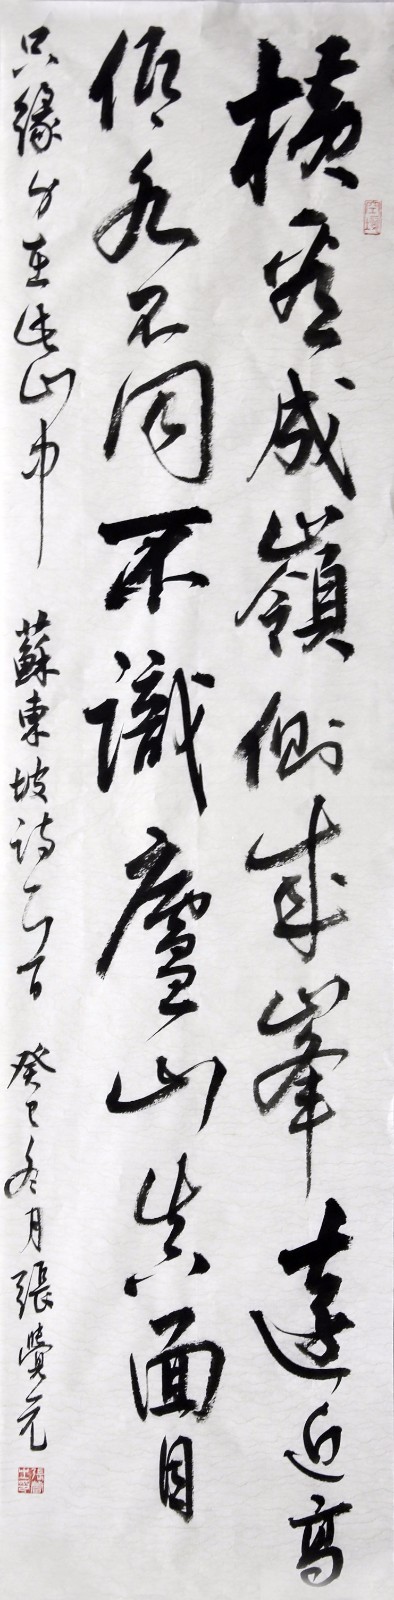 橫看成嶺側成峯遠近高
低各不同不識廬山真面目
只緣身在此山中 蘇東坡詩一首 癸巳冬月張覺元